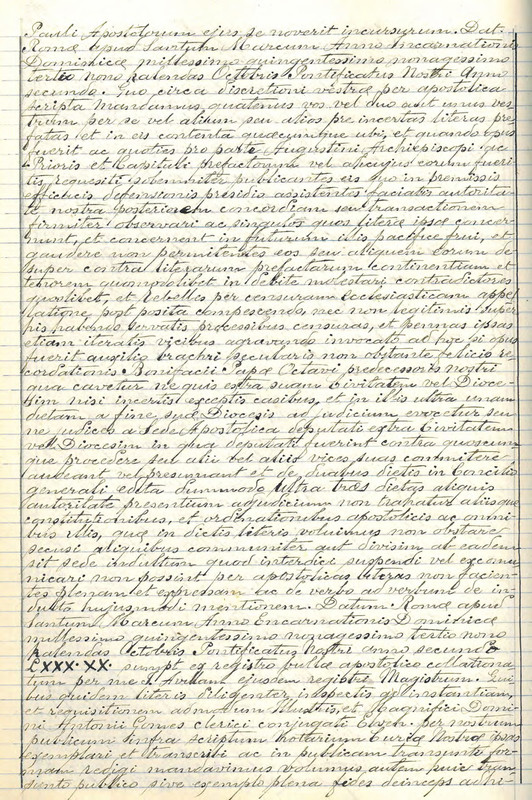 Pauli Apostolorum ejus, se noverit incursurum. Dat.
Romæ apud Santum Marcum Anno Incarnationis
Dominicæ millessimo quingentessimo nonagessimo
tertio nono kalendas Octobris Pontificatus Nostri Anno
secundo. Quo circa discretioni vestræ per apostolica
scripta mandamus, quatenus vos vel duo aut unus ves
trum per se vel alium seu alios pre incertas literas pre
fatas et in eis contenta quæcumque ubi, et quando opus
fuerit ac quoties pro parte Augustini, Archiepiscopi ac
Prioris et Capituli prefactorum vel alicujus eorum fueri
tis, requisiti solemniter publicantes eis quo in premissis
efficacis defensionis presidio assistentes faciatis autorita
te nostra posteriorem concordiam seu transactionem
firmiter observari ac singulos quos literæ ipsæ concer
nunt, et concernent in futurum illis pacifice frui, et
gaudere non permitentes eos seu aliquem eorum de
super contra literarum prefactarum continentiam et
tenorem quomodolibet in debite molestari contradictores
quoslibet, et rebelles per censuram ecclesiasticam appel
latione post posita compescendo, nec non legitimis super
his habendo servatis processibus censuras, et pennas ipsas
etiam iteratis vicibus agravando invocato ad hoc si opus
fuerit auxilio brachii secularis non obstante felicis re
cordationis Bonifacii Papæ Octavi predecessoris nostri
qua cavetur ne quis extra suam Civitatem vel Dioce-
sim nisi incertis exceptis casibus, et in illis ultra unam
dietam a fine suæ Diocesis ad judicium evocetur seu
ne judices a Sede Apostolica deputati extra Civitatem
vel Diocesim in qua deputati fuerint contra quoscum
que procedere seu alii vel aliis vices suas committere
audeant vel presumant et de duabus dietis in Concilio
generali edita dummodo ultra tres dietas aliquis
autoritate presentium adjudicium non trahatur aliisque
constitutionibus, et ordinationibus apostolicis ac omni
bus illis, quæ in dictis literis voluimus non obstare
secusi aliquibus communiter aut divisim ab eadem
sit sede indultum quod interdici suspendi vel excomu
nicari non possint per apostolicas literas non facien-
tes plenam et expressam ac de verbo ad verbum de in-
dulto hujusmodi mentionem. Datum Romæ apud
Santum Marcum, Anno Encarnationis Dominicæ
millessimo quingentessimo nonagessimo tertio nono
kalendas Octobris Pontificatus nostri anno secundo
LXXX.XX. sumpt ex registro bullæ apostolico collationa
tum per me A. ejusdem registre Magistrum. Qui
bus quidem literis diligenter, inspectis ad instantiam,
et requisitionem admodum Illustris, et Magnifici Domi-
ni Antonii Comes clerici conjugati per nostrum
publicum infra scriptum notarium Curiæ Nostræ ipsas
exemplari et transcribi ac in publicam transumti for-
mam redigi mandavimus volumus autem huic tran
sunto publico sive exemplo plena fides deinceps ad hi-